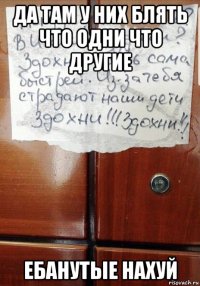 ДА ТАМ У НИХ БЛЯТЬ
ЧТО ОДНИ ЧТО
ДРУГИЕ
сама
быстрей. Из-за тебя
страдают наши дети
Здохни!!! Здохни!!
ЕБАНУТЫЕ НАХУЙ
risovach.ru